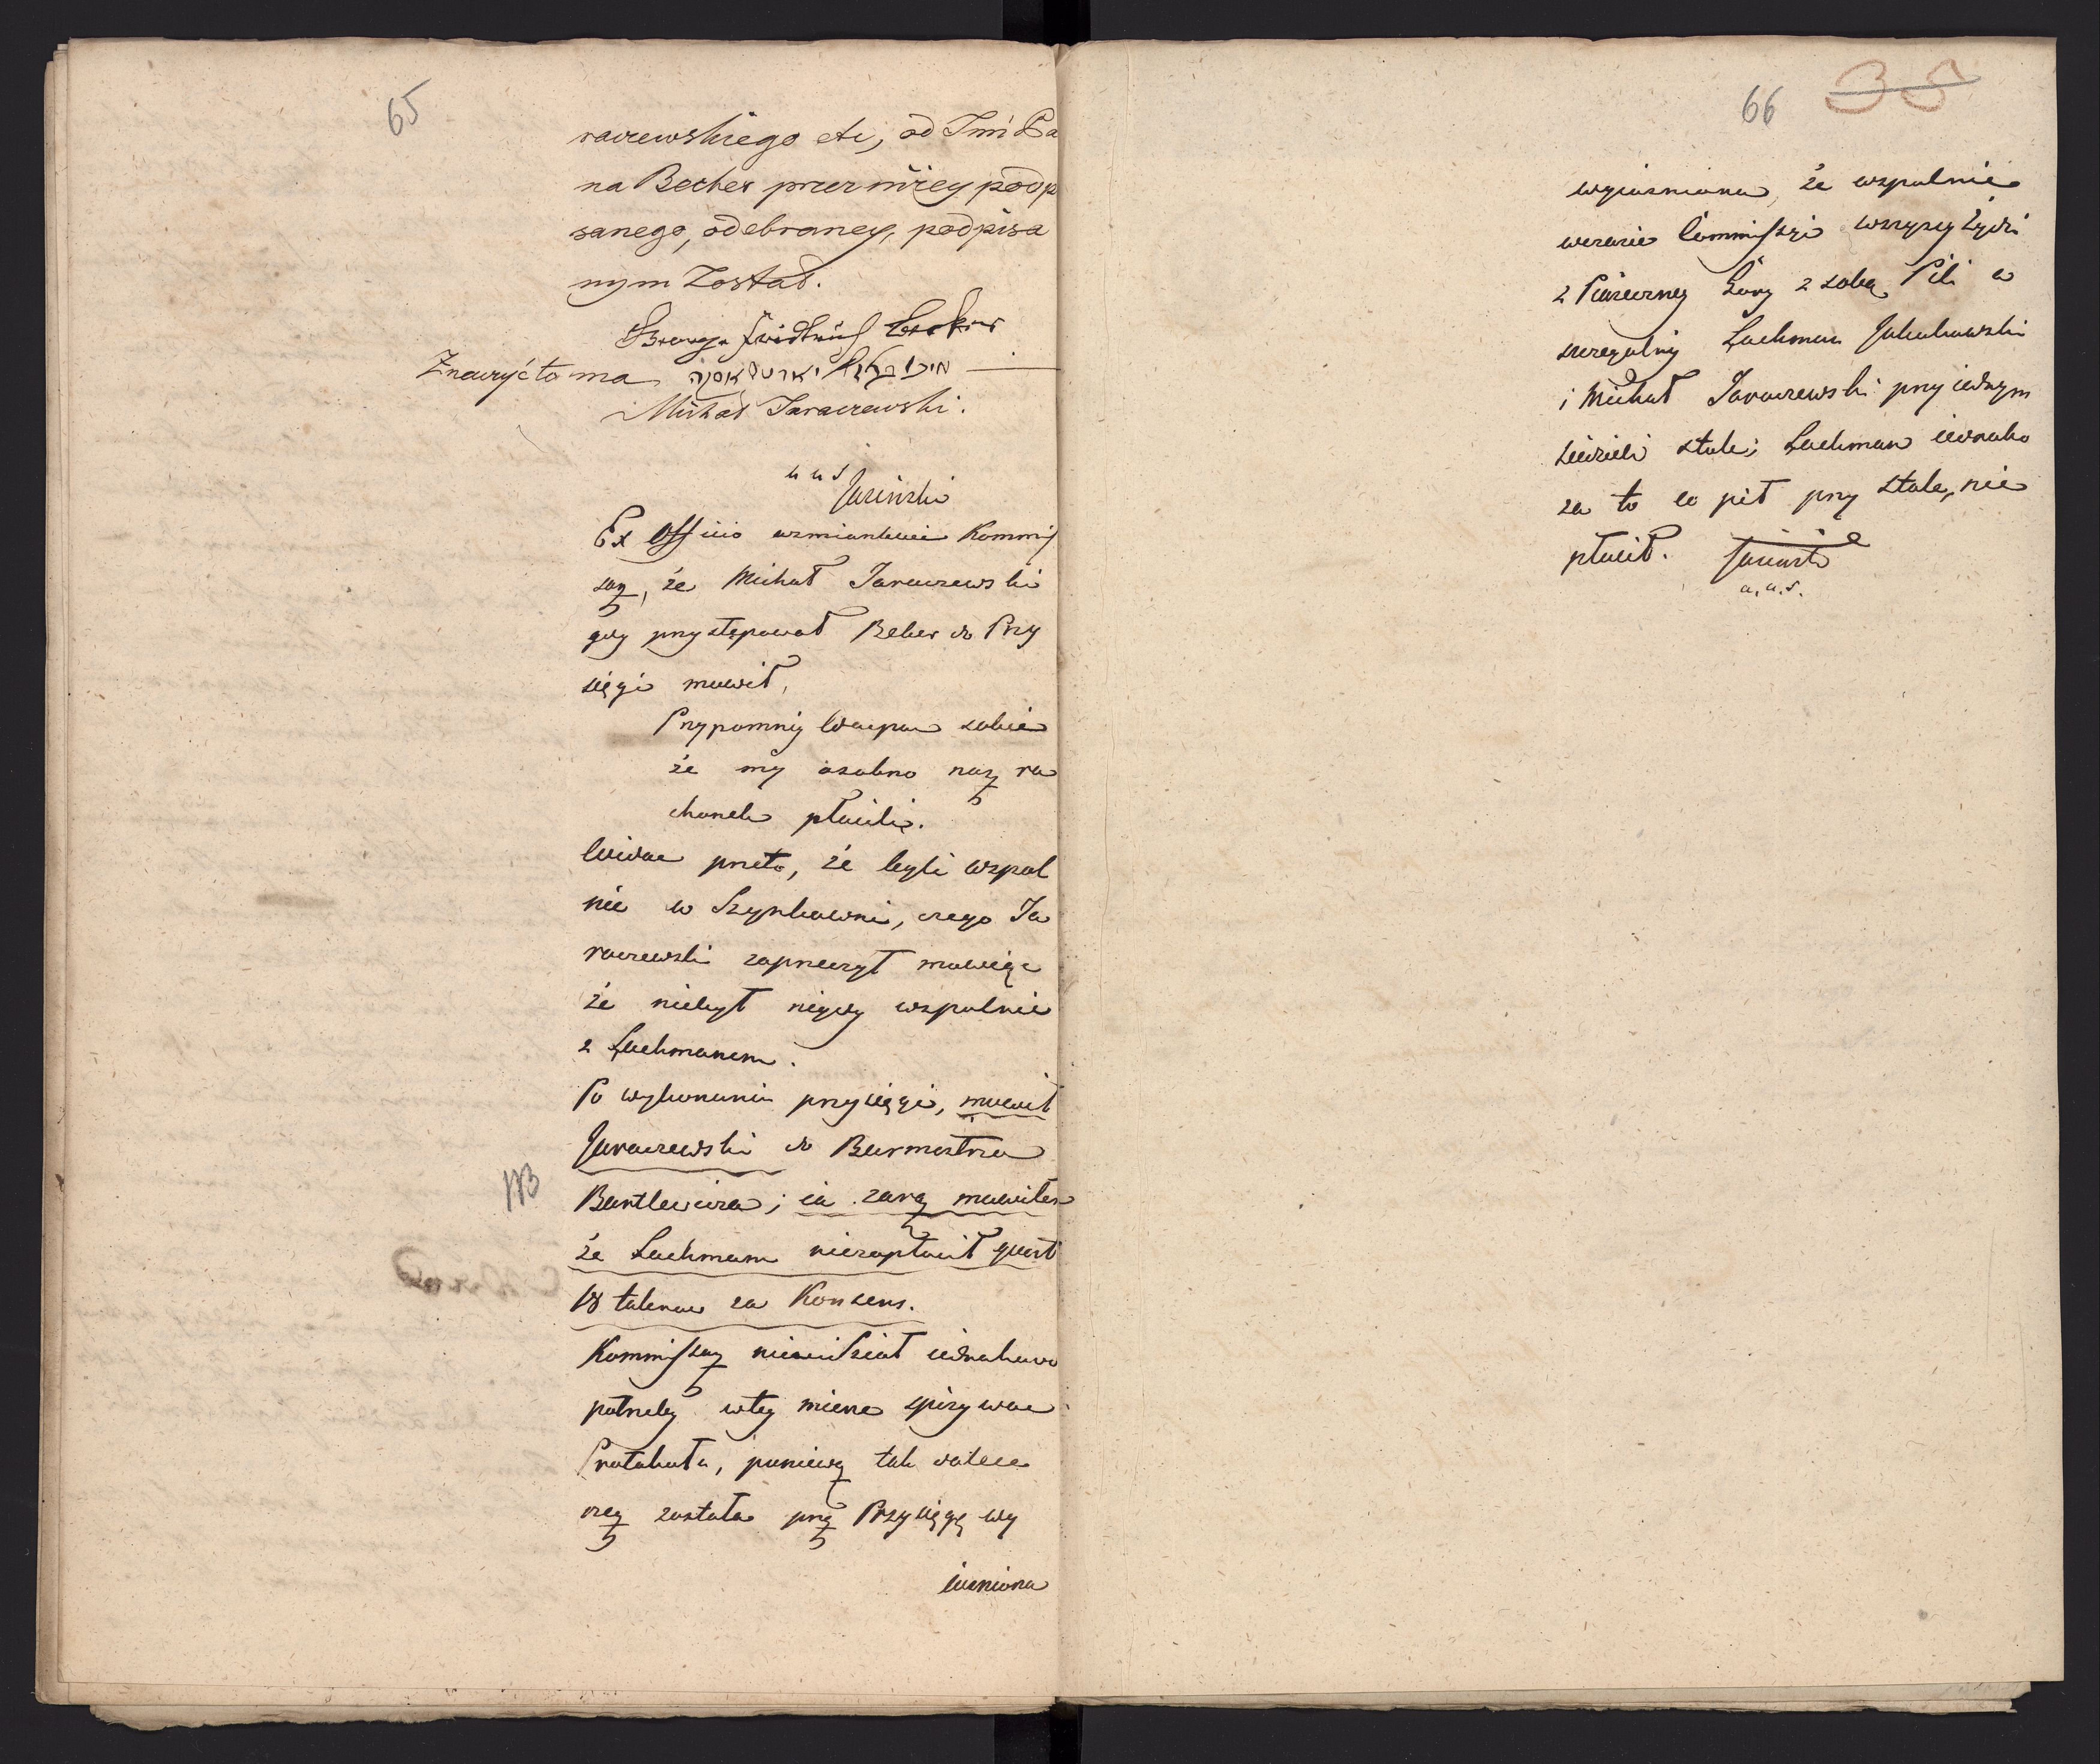 65
raczewskiego etc, od Jmi Pa
na Becher przez niżey podp
sanego, odebraney, podpisa
nym Został.
Friedrich
Znaczyć to ma
Michał Jaraczewski.
a u s
Jasinski
Ex Officio wzmiankuie Kommis
sarz, że Michał Jaraczewski
gdy przystępował Beker do Przy
sięgi mowił,
Przypomniy Waspan sobie
że my osobno nasz ra
chunek płacili.
Widac przeto, że byli wspol
nie w Szynkowni, czego Ja
raczewski zaprzeczył mowiąc
że niebył nigdy wspolnie
z Lachmanem.
Po wykonaniu przysięgi, mowił
Jaraczewski do Burmistrza
NB
Bartlewicza; ia zaraz mowilem
że Lachman niezapłacił
18 talerow za Konsens.
Kommissarz niewidział iednakowo
potrzeby w tey mierze spisywac
Protokołu, poniewaz tak dalece
rzecz została przez Przysięgę wy
iasniona
66
35
wyiasniona, że wspolnie
w czasie Commissyi wszyscy Żydzi
z Piaseczney Gory z sobą Pili a
szczegolniy Lachman Jakubowski
i Michał Jaraczewski przy iednym
siedzieli stole; Lachman iednako
za to co pił przy stole, nie
płacił. Jasinski
a. u. s.